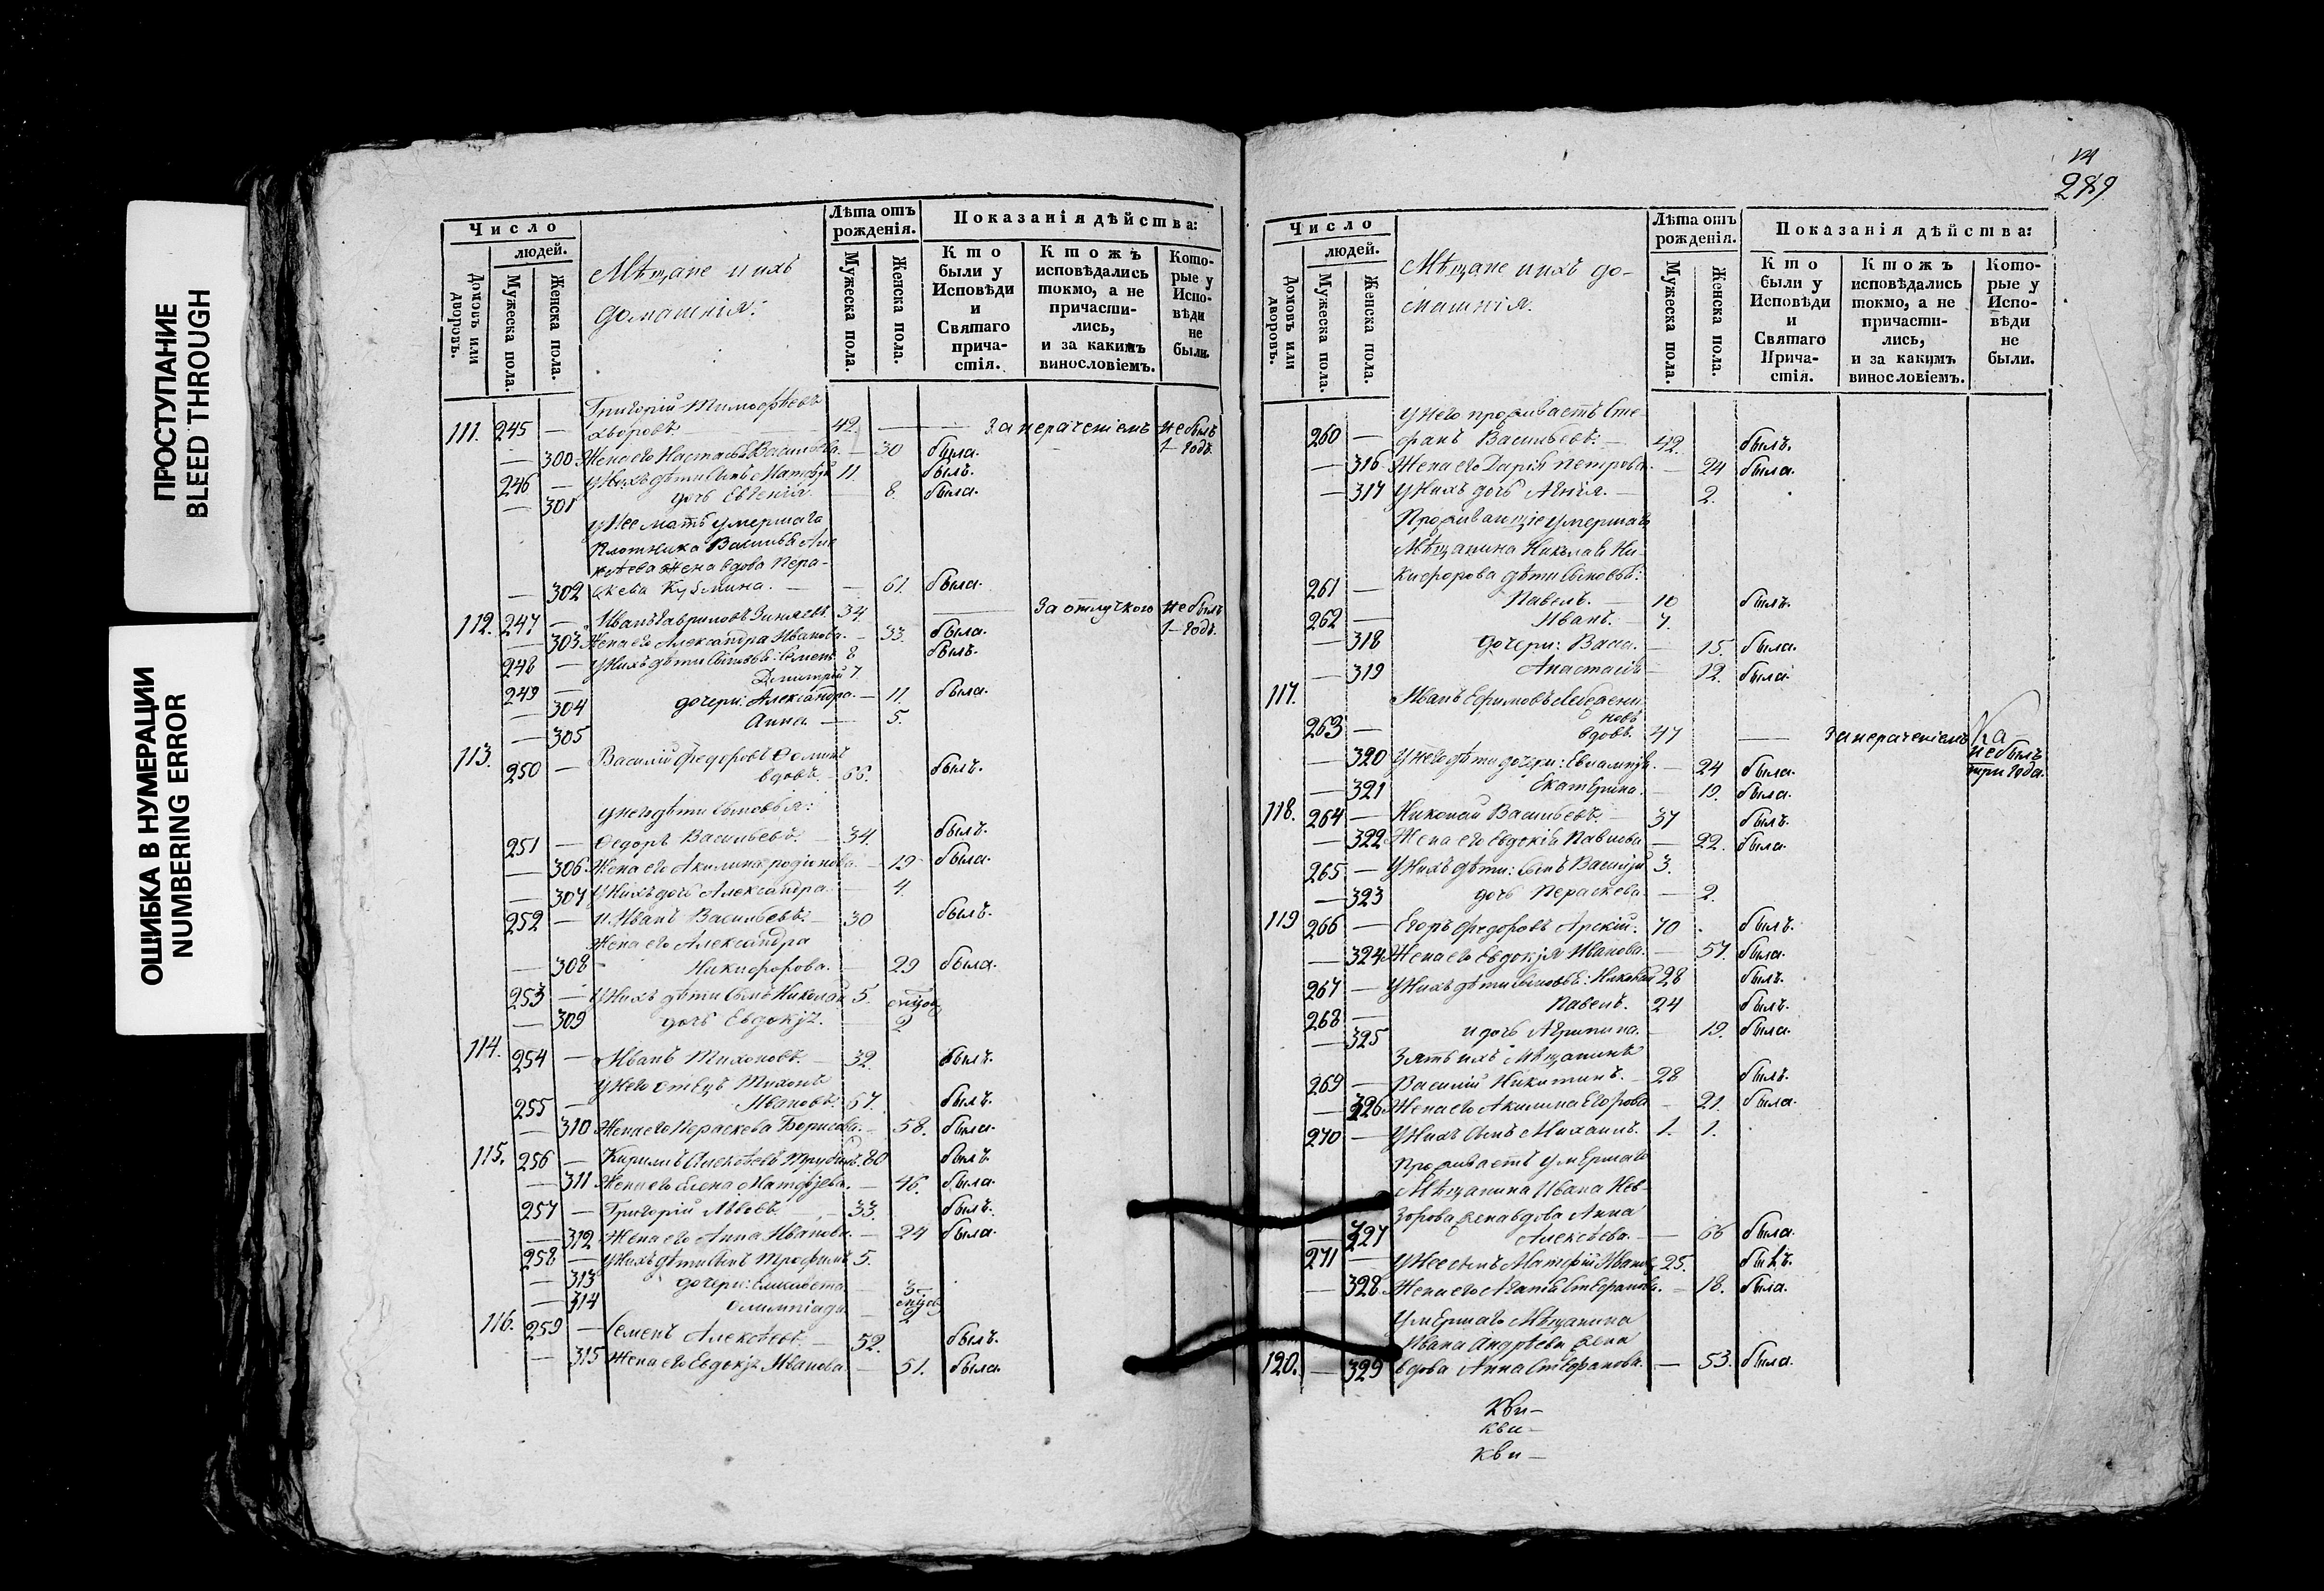 ПРОСТУПАНИЕ
BLEED THROUGH
ОШИБКА В НУМЕРАЦИИ
NUMBERING ERROR
Число
людей.
Домовъ или дворовъ.
Мужеска пола.
Женска пола.
Мѣщане и ихъ
домашнія:
Лѣта отъ
рожденія.
Мужеска пола.
Женска пола.
Показанія дѣйства:
Кто
были у
Исповѣди
и
Святаго
прича-
стія.
Ктожъ
исповѣдались
токмо, а не
причасти-
лись,
и за какимъ
винословіемъ.
Кото-
рые у
Испо-
вѣди
не
были.
Григорій Тимофѣевъ
111. 245 — 42. — За нераченіемъ не былъ
— 300 Жена его Настасья Васильева. — 30 была. 1 годъ
246 — У нихъ дѣти сынъ Матвѣй 11. былъ.
— 301 дочь Евгенія. — 8. была.
У нее мать умершаго
Плотника Василья Але-
ксѣева жена вдова Пера-
— 302 скева Кузмина. — 61. была.
112. 247 — Иванъ Гавриловъ 34 — За отлучкою не былъ
— 303 Жена его Александра Иванова. — 33. была. 1 годъ.
248 — У нихъ дѣти сыновья: Семенъ 8 былъ.
249 — Дмитрій 7
— 304 дочери: Александра. — 11. была.
— 305 Анна. — 5.
113. Василій Федоровъ Фоминъ
250 — вдовъ. — 66. былъ.
У него дѣти сыновья:
251 — Федоръ Васильевъ. — 34. былъ.
— 306 Жена его Акилина Родіонова. — 19 была.
— 307 У нихъ дочь Александра. — 4.
252 — и Иванъ Васильевъ. — 30 былъ.
Жена его Александра
— 308 Никифорова. — 29 была.
253 — У нихъ дѣти сынъ Николай 5.
— 309 дочь Евдокія. — 2
114. 254 — Иванъ Тихоновъ. — 32. былъ.
У него отецъ Тихонъ
255 — Ивановъ. 67. былъ.
— 310 Жена его Пераскева Борисова. — 58. была.
115. 256 — Кирилъ Алексѣевъ Трубинъ. 80 былъ
— 311 Жена его Елена Матвѣева. — 46. была.
257 — Григорій Львовъ — 33. былъ.
— 312 Жена его Анна Иванова. — 24 была.
258 — У нихъ дѣти сынъ Трофимъ 5.
— 313 дочери: Елисавета — 3
— 314 Олимпіада — 2
116. 259 — Семенъ Алексѣевъ. — 52. былъ.
— 315 Жена его Евдокія Иванова. — 51. была.
289
Число
людей.
Домовъ или дворовъ.
Мужеска пола.
Женска пола.
Мѣщане и ихъ до-
машнія.
Лѣта отъ
рожденія.
Мужеска пола.
Женска пола.
Показанія дѣйства:
Кто
были у
Исповѣди
и
Святаго
Прича-
стія.
Ктожъ
исповѣдались
токмо, а не
причасти-
лись,
и за какимъ
винословіемъ.
Кото-
рые у
Испо-
вѣди
не
были.
У него проживаетъ Сте-
260 — фанъ Васильевъ. — 42. былъ.
— 316 Жена его Дарія Петрова. — 24 была.
— 317 У нихъ дочь Агнія. — 2.
Проживающіе умершаго
Мѣщанина Николая Ни-
кифорова дѣти сыновья:
261 — Павелъ. — 10 былъ.
262 — Иванъ. — 7.
— 318 дочери: Васса. — 15. была.
— 319 Анастасія — 12. была.
117. Иванъ Ефимовъ
новъ
263 — вдовъ. 47 — За нераченіемъ
не былъ
три года.
— 320 У него дѣти дочери: Евлампія. — 24 была.
— 321 Екатерина. — 19. была.
118. 264 — Николай Васильевъ. — 37 былъ.
— 322 Жена его Евдокія Павлова — 22. была.
265 — У нихъ дѣти: сынъ Василій 3.
— 323 дочь Пераскева. — 2.
119 266 — Егоръ Федоровъ Арскій. 70 былъ.
— 324 Жена его Евдокія Иванова. — 57. была.
267 — У нихъ дѣти сыновья: Николай 28 былъ.
268 — Павелъ. 24 былъ.
— 325 и дочь Агрипина. — 19. была.
Зять ихъ Мѣщанинъ
269 — Василій Никитинъ. — 28 былъ.
— 326 Жена его Акилина Егорова — 21. была.
270 — У нихъ сынъ Михаилъ. 1. 1.
Проживаетъ умершаго
Мѣщанина Ивана Нев-
зорова жена вдова Анна
— 327 Алексѣева. — 66 была.
271 — У нее сынъ Матфій Иванов 25. былъ.
— 328 Жена его Агафья Стефанова. — 18. была.
Умершаго Мѣщанина
Ивана Андрѣева жена
120. — 329 вдова Анна Стефанова. — 53. была.